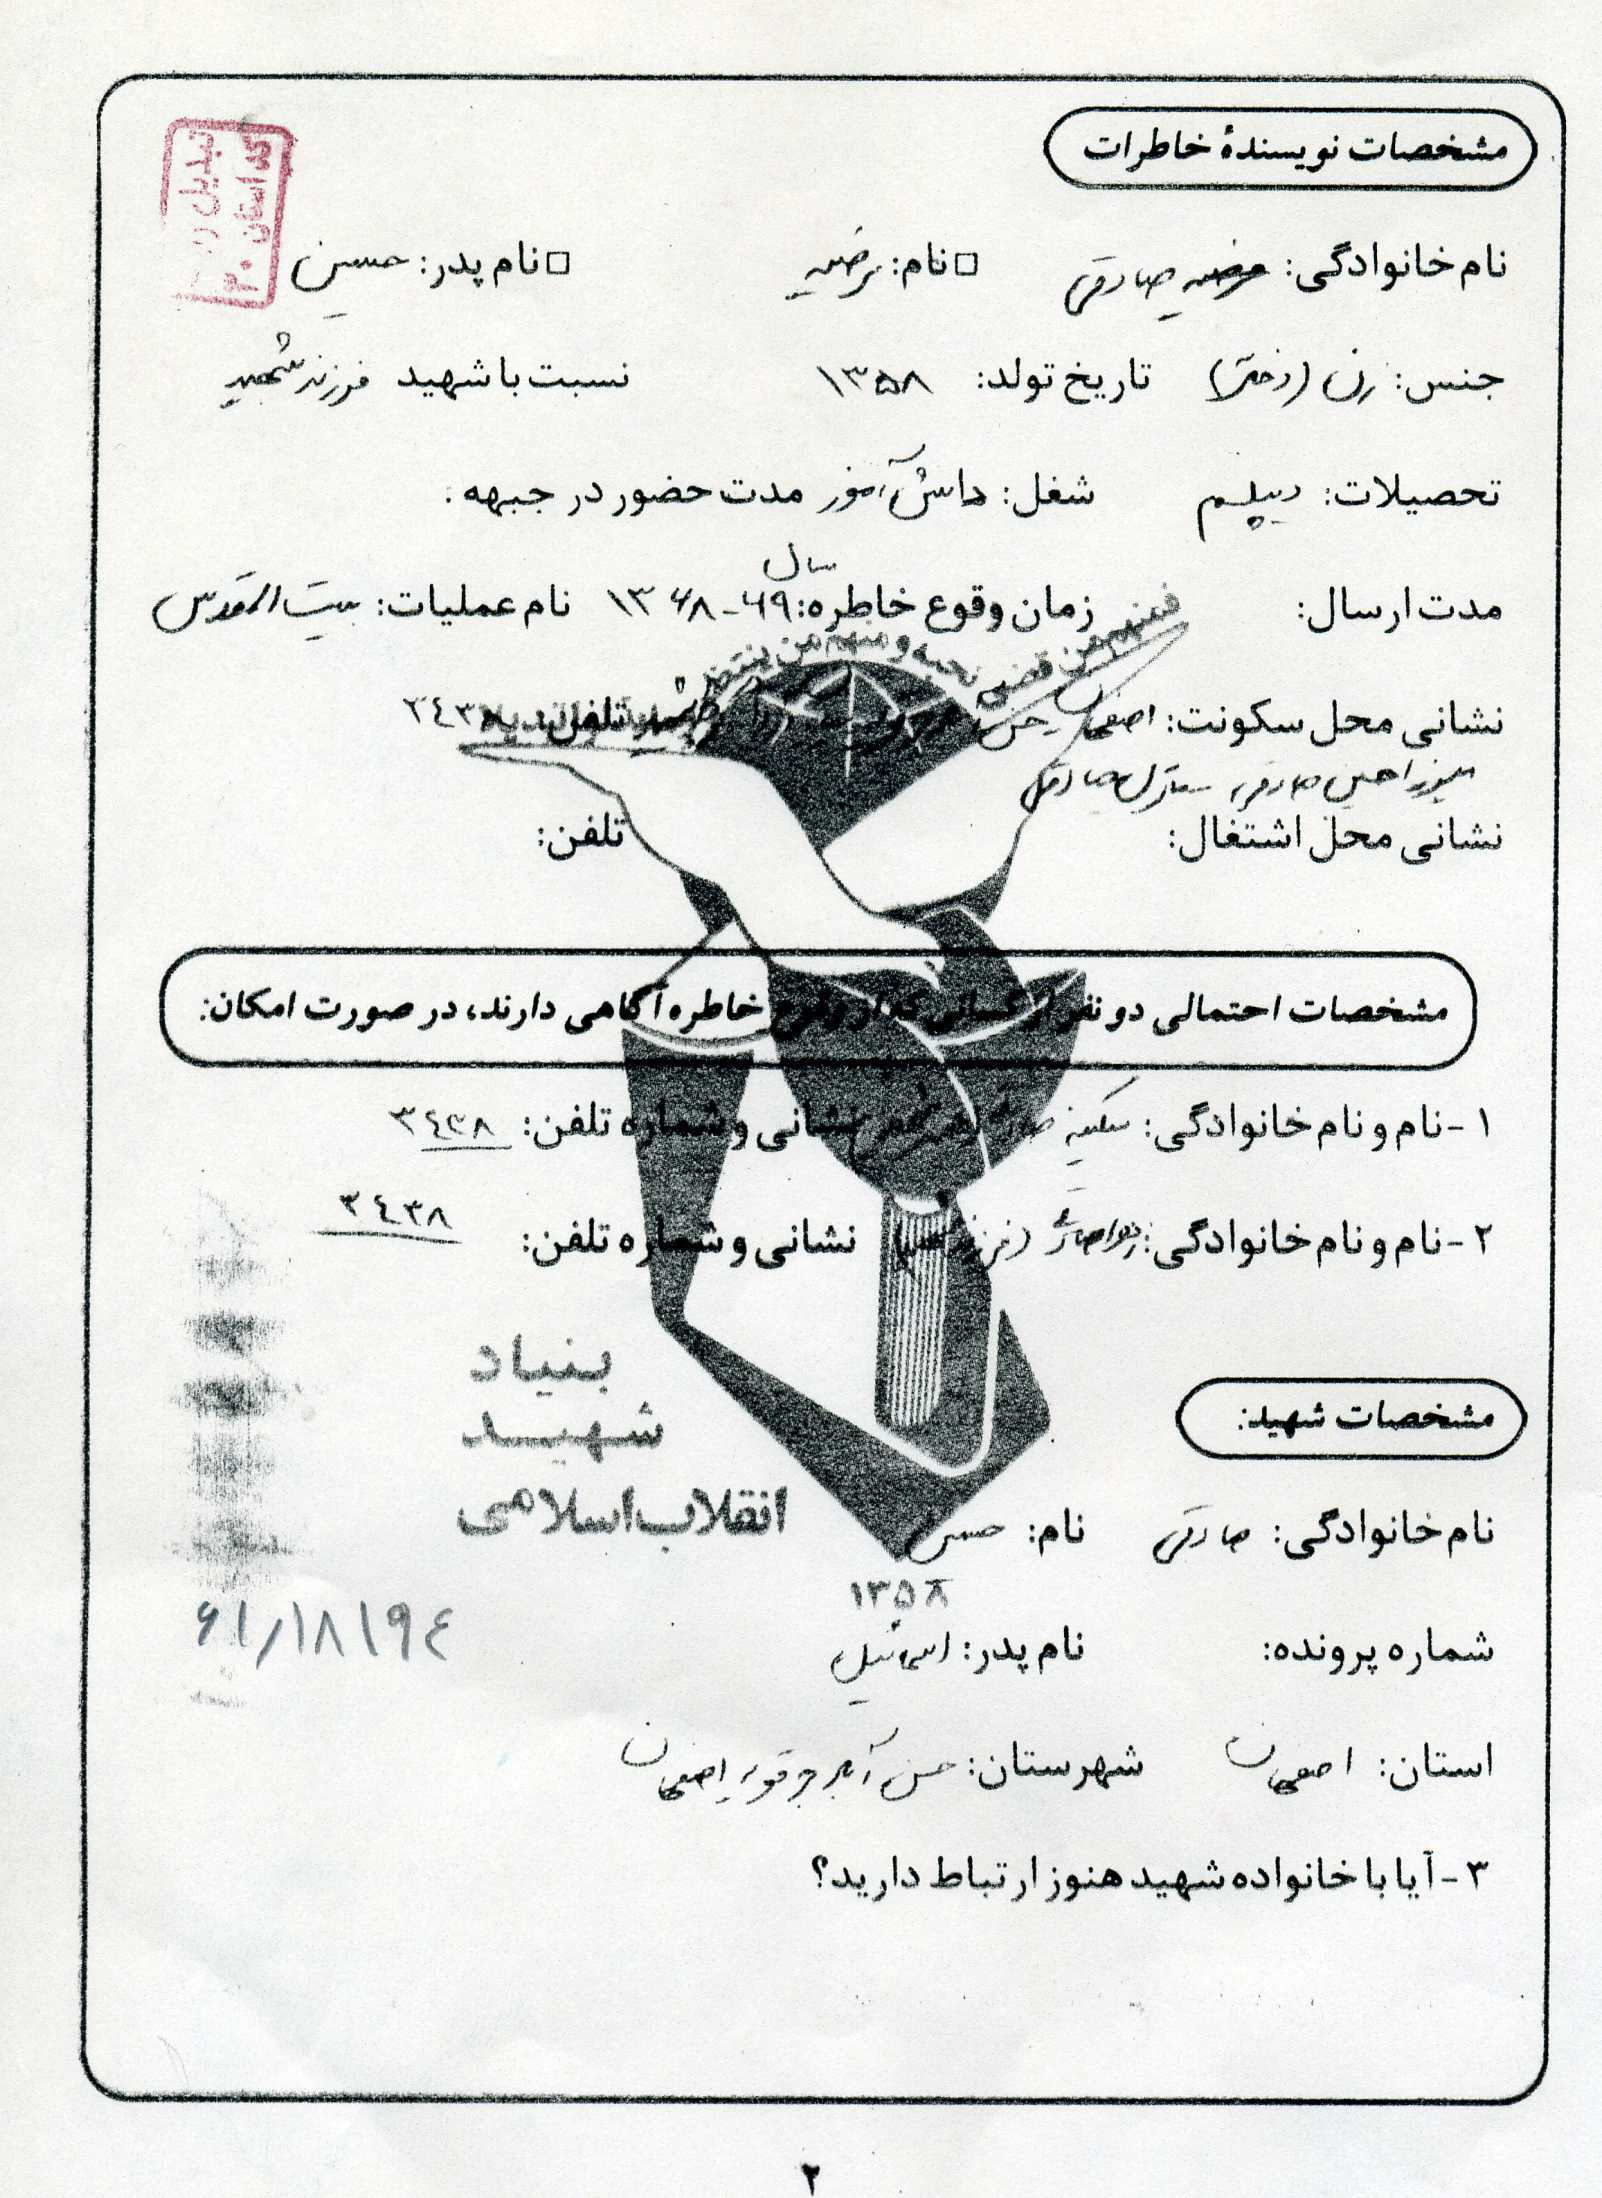 مشخصات نویسندهٔ خاطرات
تبدیل
کد استان ۳۰
نام خانوادگی: صادقی □نام: مرضیه □نام پدر: حسین
جنس: زن (دختر) تاریخ تولد: ۱۳۵۸ نسبت با شهید فرزند شهید
تحصیلات: دیپلم شغل: دانش آموز مدت حضور در جبهه:
مدت ارسال: زمان وقوع خاطره: سال ۶۹-۱۳۶۸ نام عملیات: بیت المقدس
فمنهم من قضی نحبه و منهم من ینتظر
نشانی محل سکونت: اصفهان تلفن: ۳۴۳۸
میرزا حسین صادقی منزل صادقی
نشانی محل اشتغال: تلفن:
مشخصات احتمالی دو نفر از کسانی که از وقوع خاطره آگاهی دارند، در صورت امکان:
۱-نام و نام خانوادگی: سکینه نشانی و شماره تلفن: ۳۴۳۸
۲-نام و نام خانوادگی: نشانی و شماره تلفن: ۳۴۳۸
بنیاد
شهید
انقلاب اسلامی
۱۳۵۸
مشخصات شهید:
نام خانوادگی: صادقی نام: حسین
شماره پرونده: نام پدر: اسماعیل
۶۱/۱۸۱۹۴
استان: اصفهان شهرستان: حسن آباد جرقویه اصفهان
۳-آیا با خانواده شهید هنوز ارتباط دارید؟
۲